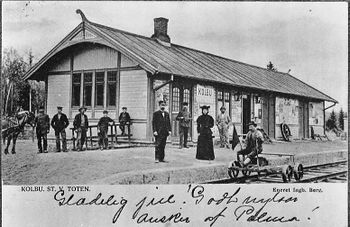 KOLBU
KOLBU. ST. V. TOTEN.
Eneret Ingb. Berg.
Gladelig jul! Godt nytaar
ønskes af Palma!